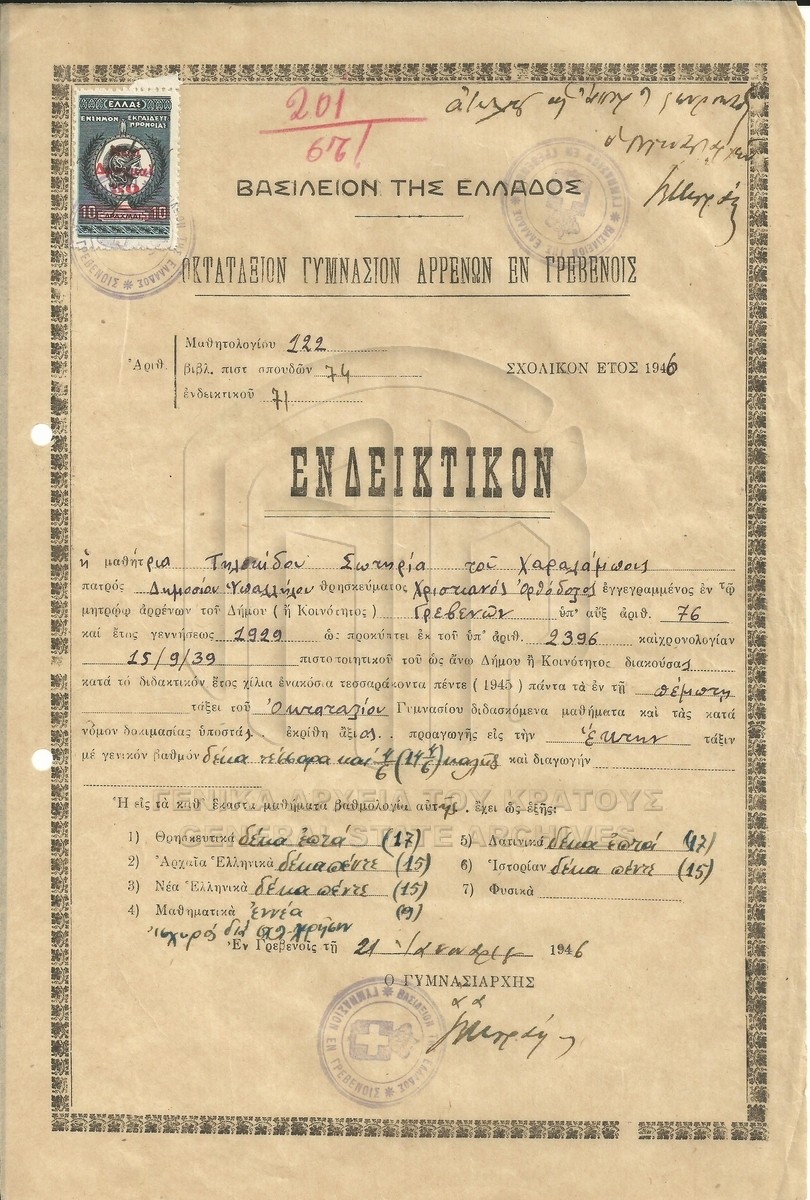 ΕΛΛΑΣ
ΕΝΣΗΜΟΝ ΕΚΠΑΙΔΕΥΤ.
ΠΡΟΝΟΙΑΣ
10 ΔΡΑΧΜΑΙ 10
201
ΒΑΣΙΛΕΙΟΝ ΤΗΣ ΕΛΛΑΔΟΣ
ΟΚΤΑΤΑΞΙΟΝ ΓΥΜΝΑΣΙΟΝ ΑΡΡΕΝΩΝ ΕΝ ΓΡΕΒΕΝΟΙΣ
Μαθητολογίου 122
Ἀριθ. βιβλ. πιστ σπουδῶν 74
ἐνδεικτικοῦ 71
ΣΧΟΛΙΚΟΝ ΕΤΟΣ 1946
ΕΝΔΕΙΚΤΙΚΟΝ
ἡ μαθήτρια Σωτηρία τοῦ Χαραλάμπους
πατρὸς Δημοσίου Ὑπαλλήλου θρησκεύματος Χριστιανὸς Ὀρθόδοξος ἐγγεγραμμένος ἐν τῷ
μητρώῳ ἀρρένων τοῦ Δήμου ( ἢ Κοινότητος ) Γρεβενῶν ὑπ' αὔξ ἀριθ. 76
καὶ ἔτος γεννήσεως 1929 ὡς προκύπτει ἐκ τοῦ ὑπ' ἀριθ. 2396 καὶχρονολογίαν
15/9/39 πιστοποιητικοῦ τοῦ ὡς ἄνω Δήμου ἢ Κοινότητος διακούσασ
κατὰ τὸ διδακτικὸν ἔτος χίλια ἐνακόσια τεσσαράκοντα πέντε ( 1945 ) πάντα τὰ ἐν τῇ πέμπτῃ
τάξει τοῦ Ὀκταταξίου Γυμνασίου διδασκόμενα μαθήματα καὶ τὰς κατὰ
νόμον δοκιμασίας ὑποστὰσ. ἐκρίθη ἄξιος. προαγωγῆς εἰς τὴν Ἕκτην τάξιν
μὲ γενικὸν βαθμὸν δέκα τέσσαρα καὶ 4/6 (14 4/6) καλῶς καὶ διαγωγήν
ΓΕΝΙΚΑ ΑΡΧΕΙΑ ΤΟΥ ΚΡΑΤΟΥΣ
Ἡ εἰς τὰ καθ' ἕκαστα μαθήματα βαθμολογία αὐτῆς. ἔχει ὡς ἑξῆς:
GENERAL STATE ARCHIVES
1) Θρησκευτικὰ δέκα ἑπτά (17)
2) Ἀρχαῖα Ἑλληνικὰ δέκα πέντε (15)
3) Νέα Ἑλληνικὰ δέκα πέντε (15)
4) Μαθηματικὰ ἐννέα (9)
5) Λατινικὰ δέκα ἑπτά (17)
6) Ἱστορίαν δέκα πέντε (15)
7) Φυσικὰ
Ἐν Γρεβενοῖς τῇ 21 Ἰανουαρίου 1946
Ο ΓΥΜΝΑΣΙΑΡΧΗΣ